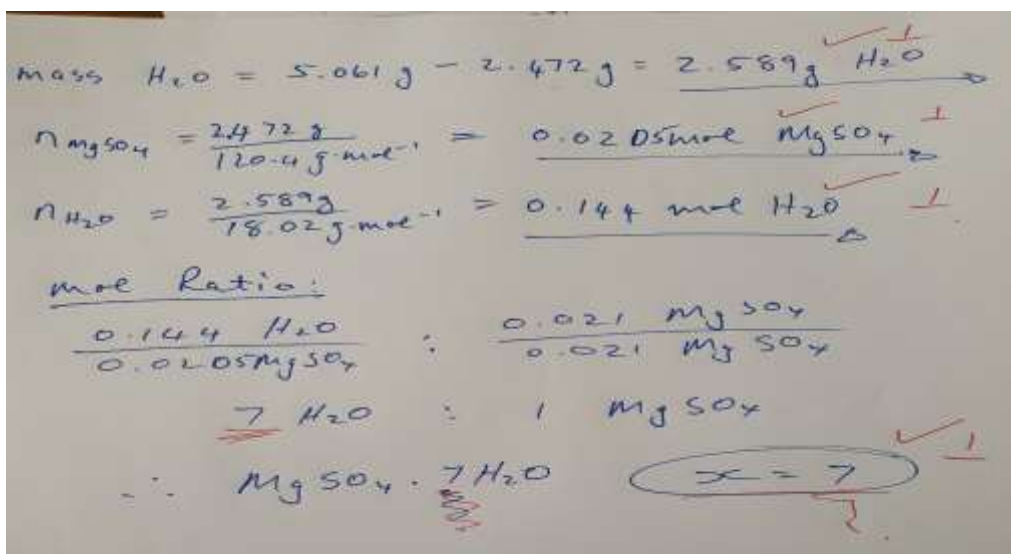 mass H₂O = 5.061 g - 2.472 g = 2.589 g H₂O ✓ 1
n MgSO₄ = 2.472 g / 120.4 g·mol⁻¹ = 0.0205 mol MgSO₄ ✓ 1
n H₂O = 2.589 g / 18.02 g·mol⁻¹ = 0.144 mol H₂O ✓ 1
mol Ratio:
0.144 H₂O / 0.0205 MgSO₄ : 0.021 MgSO₄ / 0.021 MgSO₄
7 H₂O : 1 MgSO₄
∴ MgSO₄ · 7H₂O x = 7 ✓ 1